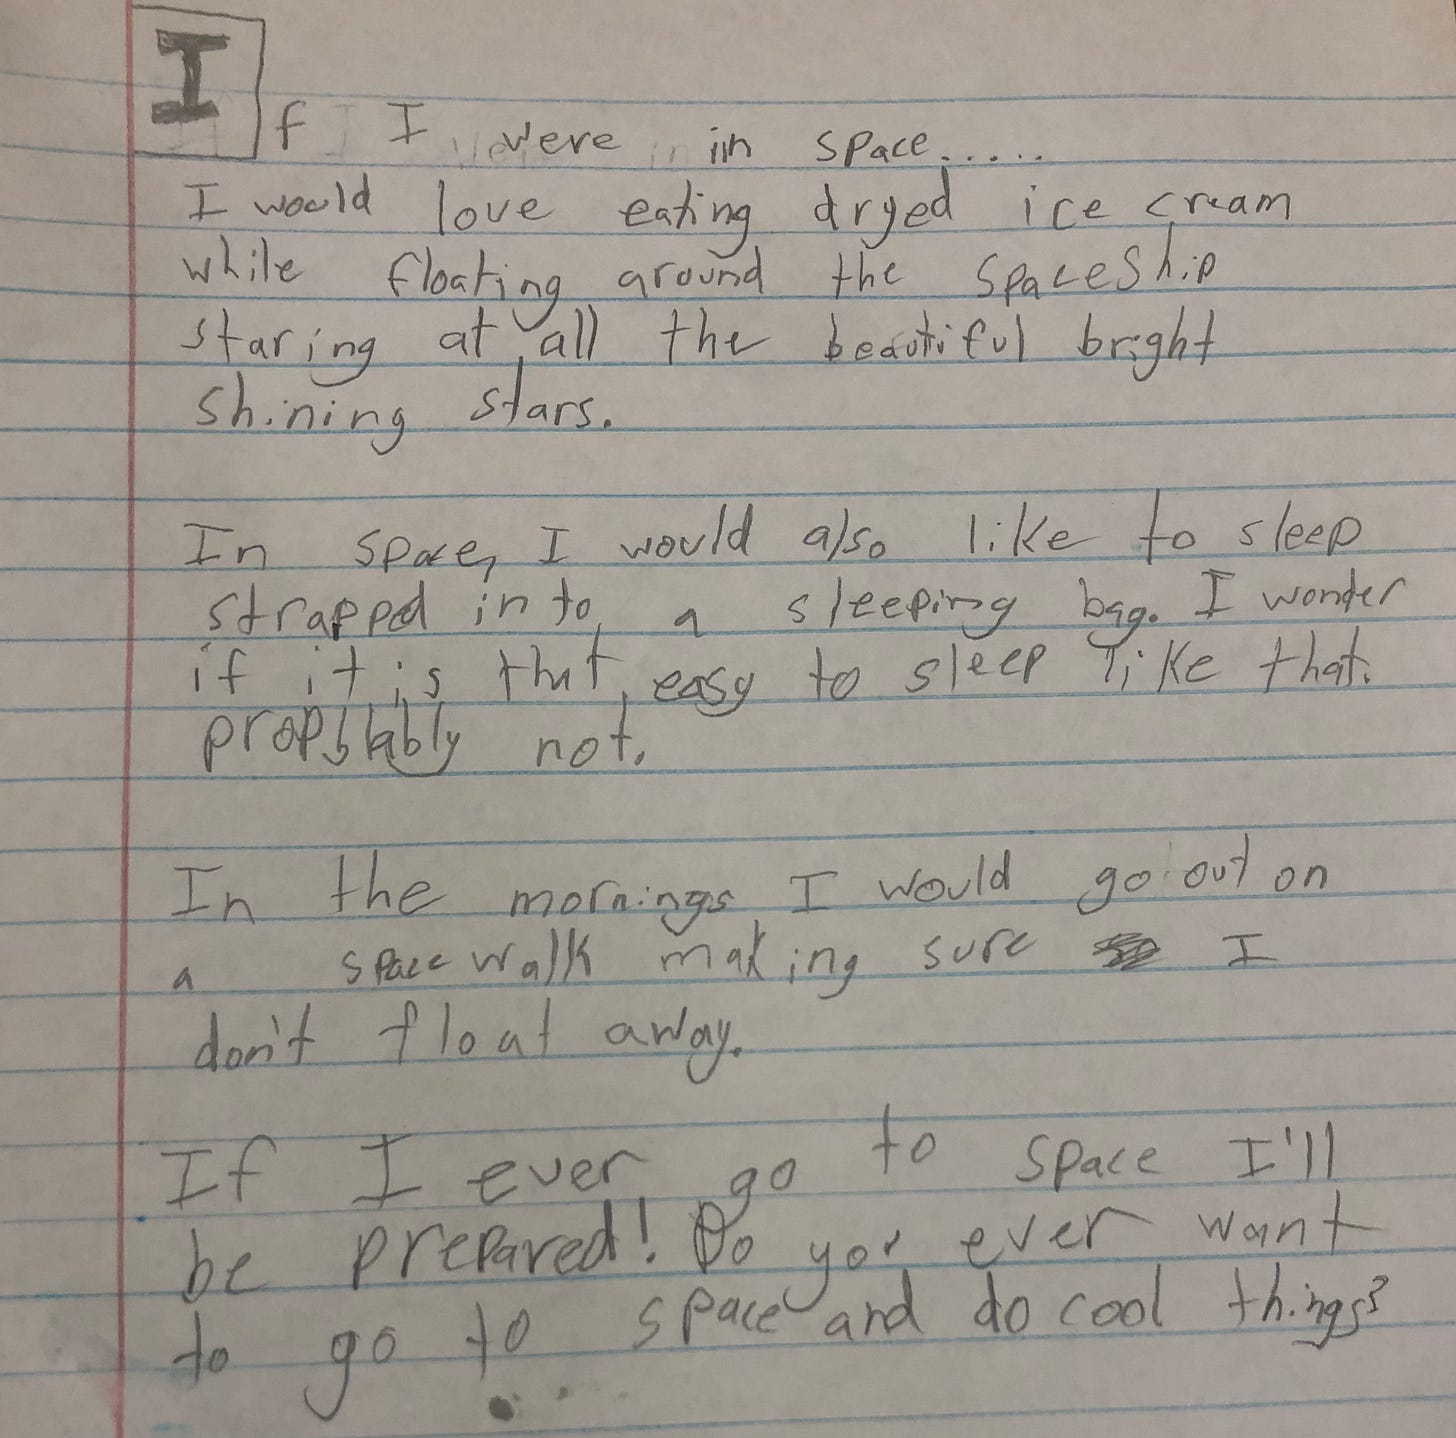 If I were in space.....
I would love eating dryed ice cream
while floating around the spaceship
staring at all the beautiful bright
shining stars.
In space, I would also like to sleep
strapped in to a sleeping bag. I wonder
if it is that easy to sleep like that.
not.
In the mornings I would go out on
a space walk making sure I
don't float away.
If I ever go to space I'll
be prepared! Do you ever want
to go to space and do cool things?